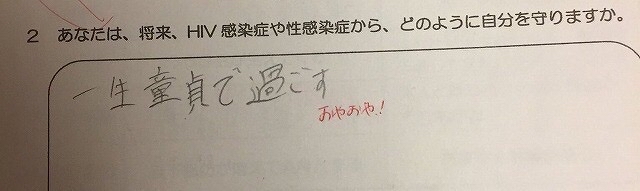 2 あなたは、将来、HIV感染症や性感染症から、どのように自分を守りますか。
一生童貞で過ごす
おやおや!